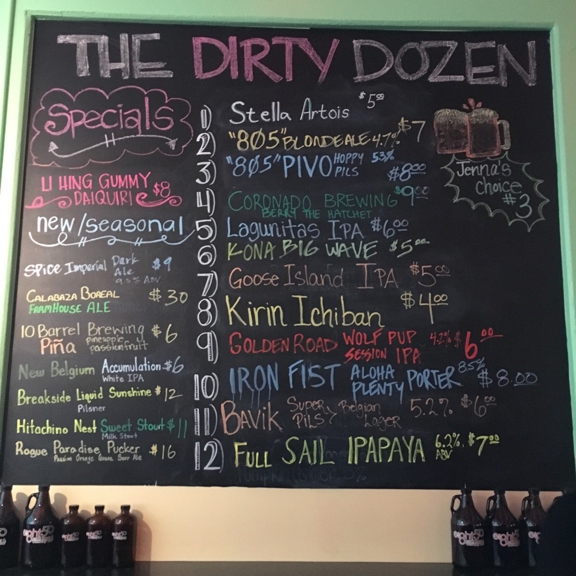 THE DIRTY DOZEN
Specials
LI HING GUMMY
DAIQUIRI $8
new/seasonal
Spice Imperial Dark
Ale $9
9.5% ABV
Calabaza Boreal $30
Farmhouse Ale
10 Barrel Brewing $6
Piña pineapple
passionfruit
New Belgium Accumulation $6
White IPA
Breakside Liquid Sunshine $12
Pilsner
Hitachino Nest Sweet Stout $11
Milk Stout
Rogue Paradise Pucker $16
Passion Orange Guava Sour Ale
1 Stella Artois $5.00
2 "805" BLONDE ALE 4.7% $7
3 "805" PIVO HOPPY PILS 5.3% $8.00
4 CORONADO BREWING $9.00
BERRY THE HATCHET
5 Lagunitas IPA $6.00
6 KONA BIG WAVE $5.00
7 Goose Island IPA $5.00
8 Kirin Ichiban $4.00
9 GOLDEN ROAD WOLF PUP 4.2% $6.00
SESSION IPA
10 IRON FIST ALOHA 8.5% $8.00
PLENTY PORTER
11 BAVIK Super Belgian 5.2% $6.00
Pils Lager
12 FULL SAIL IPAPAYA 6.2% ABV $7.00
Jenna's
Choice
#3